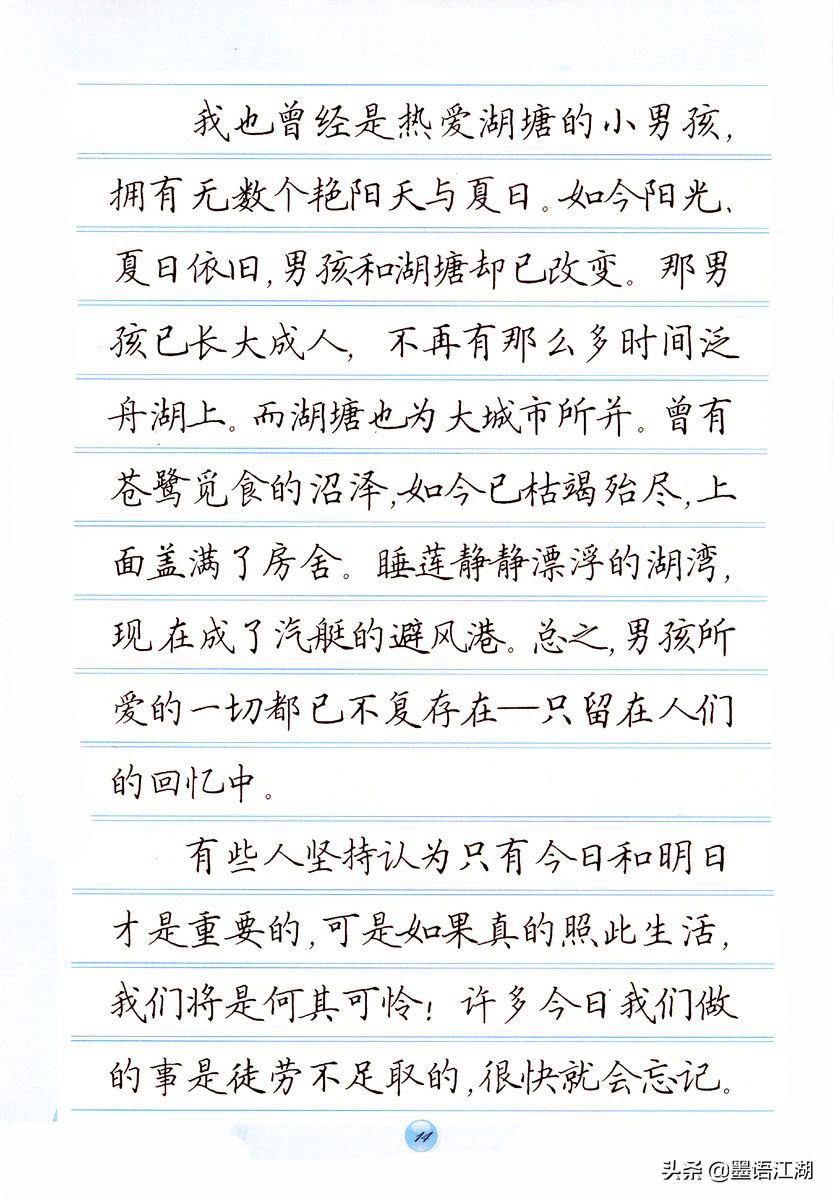 我也曾经是热爱湖塘的小男孩，
拥有无数个艳阳天与夏日。如今阳光、
夏日依旧，男孩和湖塘却已改变。那男
孩已长大成人，不再有那么多时间泛
舟湖上。而湖塘也为大城市所并。曾有
苍鹭觅食的沼泽，如今已枯竭殆尽，上
面盖满了房舍。睡莲静静漂浮的湖湾，
现在成了汽艇的避风港。总之，男孩所
爱的一切都已不复存在—只留在人们
的回忆中。
有些人坚持认为只有今日和明日
才是重要的，可是如果真的照此生活，
我们将是何其可怜！许多今日我们做
的事是徒劳不足取的，很快就会忘记。
14
头条 @墨语江湖